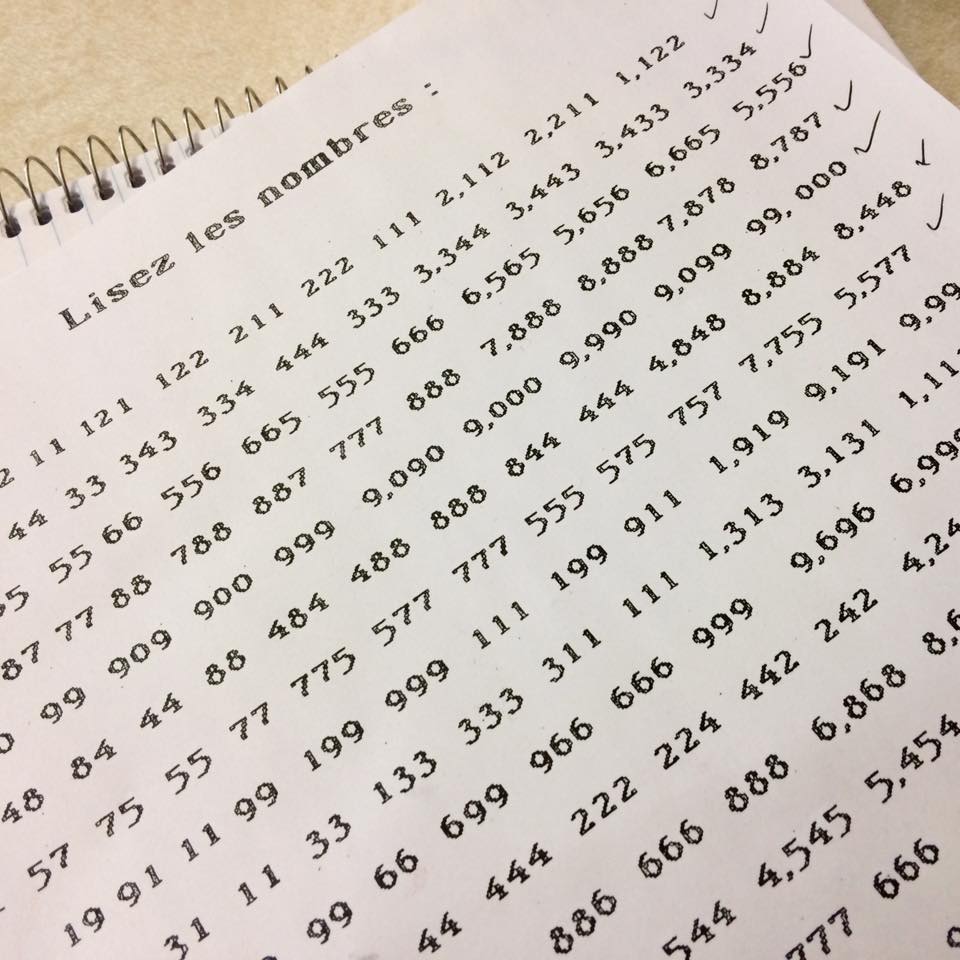 Lisez les nombres :
2 11 121 122 211 222 111 2,112 2,211 1,122
44 33 343 334 444 333 3,344 3,443 3,433 3,334
55 66 556 665 555 666 6,565 5,656 6,665 5,556
87 77 88 788 887 777 888 7,888 8,888 7,878 8,787
0 99 909 900 999 9,090 9,000 9,990 9,099 99,000
48 84 44 88 484 488 888 844 444 4,848 8,884 8,448
57 75 55 77 775 577 777 555 575 757 7,755 5,577
19 91 11 99 199 999 111 199 911 1,919 9,191 9,99
31 11 33 133 333 311 111 1,313 3,131 1,11
99 66 699 966 666 999 9,696 6,999
44 444 222 224 442 242 4,24
886 666 888 6,868 8,6
544 4,545 5,454
777 666